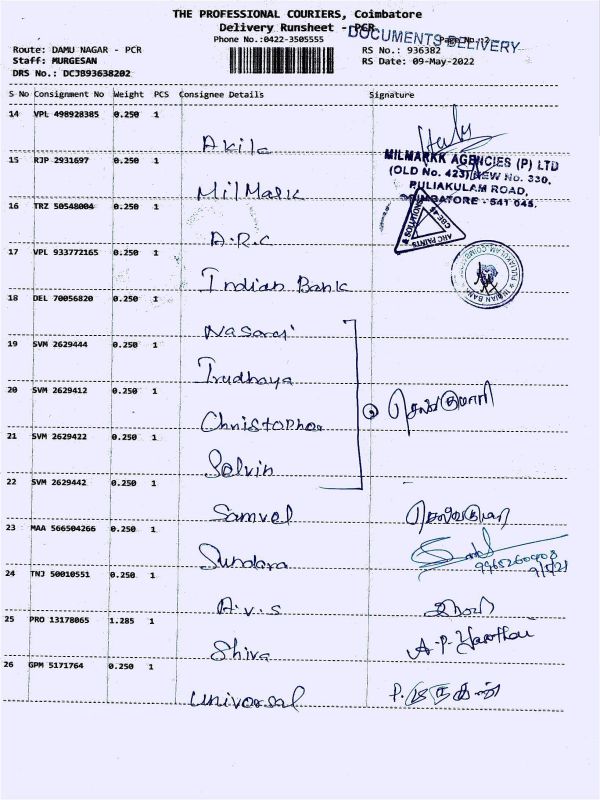 THE PROFESSIONAL COURIERS, Coimbatore
Delivery Runsheet - PCR
DOCUMENTS DELIVERY
Phone No.:0422-3505555 Page No.:2
Route: DAMU NAGAR - PCR RS No.: 936382
Staff: MURGESAN RS Date: 09-May-2022
DRS No.: DCJB93638202
S No Consignment No Weight PCS Consignee Details Signature
14 VPL 498928385 0.250 1
Akila
15 RJP 2931697 0.250 1
MILMARKK AGENCIES (P) LTD
(OLD No. 423) NEW No. 330,
PULIAKULAM ROAD,
COIMBATORE - 641 045.
MilMark
16 TRZ 50548004 0.250 1
ARC PAINTS
& SOLUTIONS
CBE-45
A.R.C
17 VPL 933772165 0.250 1
INDIAN BANK
Indian Bank
18 DEL 70056820 0.250 1
Nasaraj
19 SVM 2629444 0.250 1
Irudhaya
20 SVM 2629412 0.250 1
செல்வகுமார்
Christopher
21 SVM 2629422 0.250 1
Selvin
22 SVM 2629442 0.250 1
Samvel
23 MAA 566504266 0.250 1
Sundara
24 TNJ 50010551 0.250 1
A.V.S
25 PRO 13178065 1.285 1
Shiva
26 GPM 5171764 0.250 1
Universal